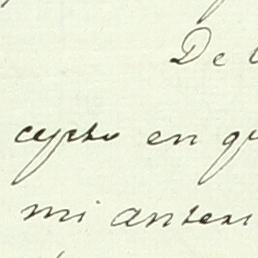 De l
cepto en q
mi anteri